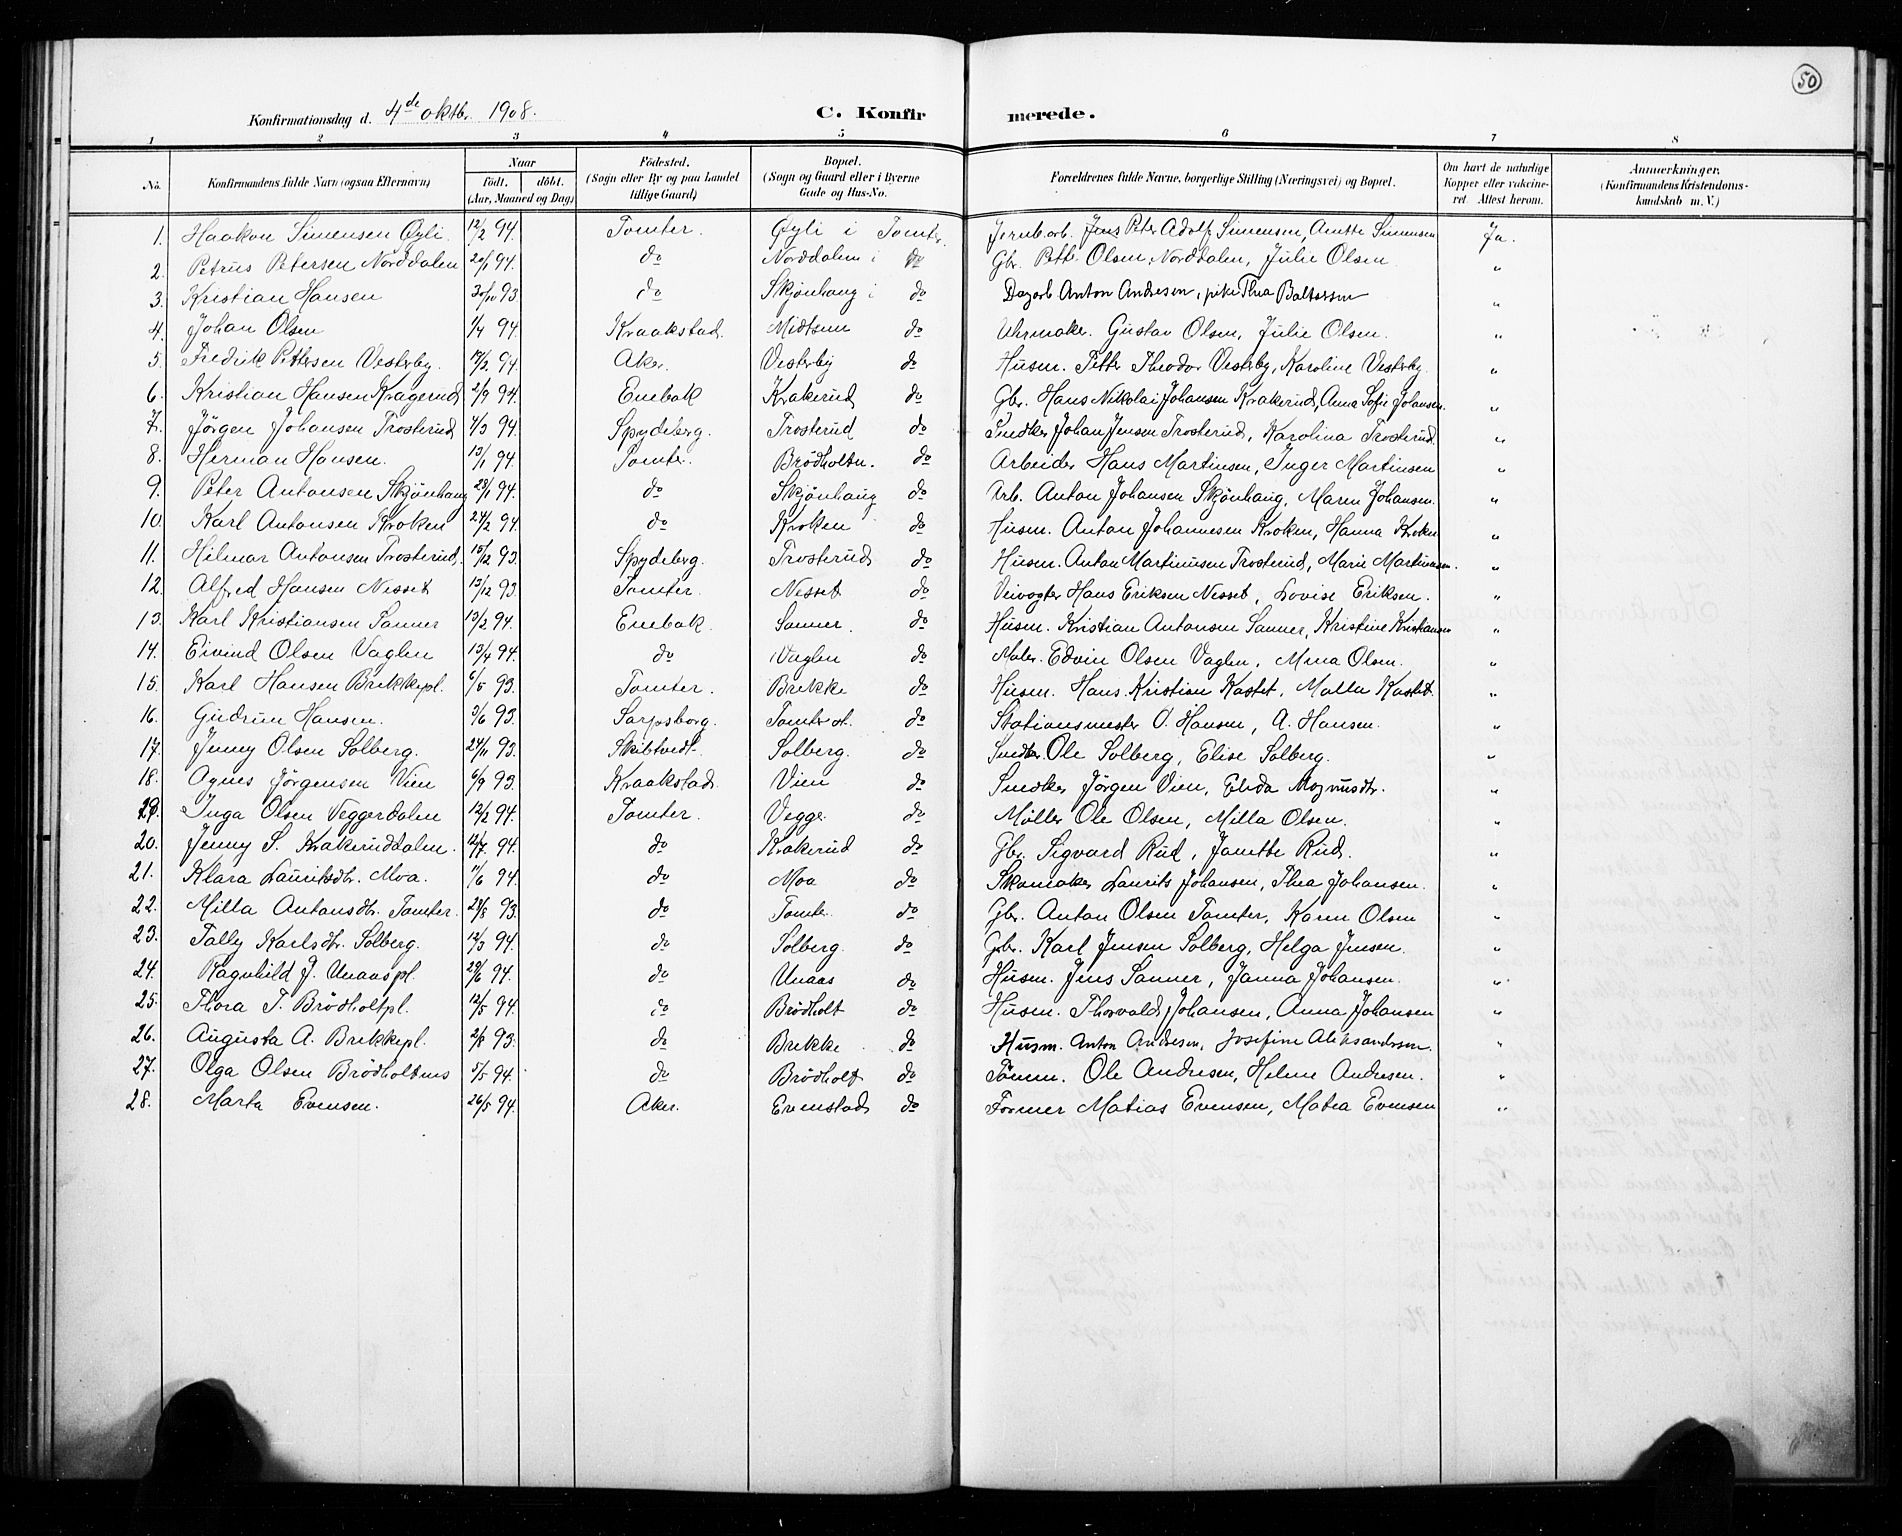 50
Konfirmationsdag d. 4de oktbr. 1908. C. Konfir merede.
1 2 3 4 5 6 7 8
No. Konfirmandens fulde Navn (ogsaa Efternavn) Naar født. døbt. (Aar, Maaned og Dag) Fødested. (Sogn eller By og paa Landet tillige Gaard) Bopæl. (Sogn og Gaard eller i Byerne Gade og Hus-No. Forældrenes fulde Navne, borgerlige Stilling (Næringsvei) og Bopæl. Om havt de naturlige Kopper eller vaccineret. Attest herom. Anmærkninger. (Konfirmandens Kristendomskundskab m. V.)
1. Haakon Simensen Gyli. 12/2 94. Tomter. Gyli i Tomter Jernbarb. Jens Peter Adolf Simensen, Anette Simensen Ja.
2. Petrus Petersen Norddalen 20/1 94. do Norddalen i do Gbr. Pett. Olsen Norddalen, Julie Olsen "
3. Kristian Hansen 30/10 93. do Skjønhaug i do Dagarb Anton Andresen, pike Thea Baltersen "
4. Johan Olsen 1/4 94. Kraakstad. Midtsem do Uhrmaker. Gustav Olsen, Julie Olsen. "
5. Fredrik Pettersen Vesterby. 14/2 94. Aker. Vesterby do Husm. Petter Theodor Vesterby, Karoline Vesterby. "
6. Kristian Hansen Kragerud 2/9 94. Enebak Krakerud do Gbr. Hans Nikolai Johansen Krakerud, Anna Sofie Johansen. "
7. Jörgen Johansen Trosterud 4/3 94. Spydeberg. Trosterud do Snedker Johan Jensen Trosterud, Karolina Trosterud. "
8. Herman Hansen. 13/1 94. Tomter. Brødholtn. do Arbeider Hans Martinsen, Inger Martinsen "
9. Peter Antonsen Skjønhaug 28/1 94. do Skjønhaug do Arb. Anton Johansen Skjønhaug, Maren Johansen. "
10. Karl Antonsen Kroken 24/2 94. do Kroken do Husm. Anton Johannesen Kroken, Hanna Kroken "
11. Hilmar Antonsen Trosterud. 15/12 93. Spydeberg. Trosterud do Husm. Anton Martinusen Trosterud, Marie Martinusen. "
12. Alfred Hansen Nesset 13/12 93. Tomter. Nesset do Veivogter Hans Eriksen Nesset, Lovise Eriksen. "
13. Karl Kristiansen Sanner 13/2 94. Enebak. Sanner. do Husm. Kristian Antonsen Sanner, Kristine Kristiansen "
14. Eivind Olsen Vaglen 13/4 94. do Vaglen do Maler. Edvin Olsen Vaglen, Mina Olsen. "
15. Karl Hansen Brekkepl. 6/5 93. Tomter. Brekke do Husm. Hans Kristian Kastet, Malla Kastet. "
16. Gudrun Hansen. 3/6 93. Sarpsborg. Tomter st. do Stationsmester O. Hansen, A. Hansen. "
17. Jenny Olsen Solberg. 24/11 93. Skibtvedt. Solberg. do Snedker Ole Solberg, Elise Solberg. "
18. Agnes Jørgensen Vien 6/9 93. Kraakstad. Vien do Snedker Jørgen Vien, Elida Magnusdtr. "
19. Inga Olsen Veggerdalen 12/2 94. Tomter. Vegge. do Møller Ole Olsen, Milla Olsen. "
20. Jenny S. Krakeruddalen. 12/7 94. do Krakerud do Gbr. Sigvard Rud, Janette Rud. "
21. Klara Lauritsdtr. Moa. 11/6 94. do Moa do Skomaker Laurits Johansen, Thea Johansen. "
22. Milla Antonsdtr. Tomter. 28/8 93. do Tomter. do Gbr. Anton Olsen Tomter, Karen Olsen "
23. Tally Karlsdtr. Solberg. 12/3 94. do Solberg. do Gbr. Karl Jensen Solberg, Helga Jensen. "
24. Ragnhild J. Unaaspl. 29/6 94. do Unaas do Husm. Jens Sanner, Janna Johansen. "
25. Thora T. Brödholtpl. 12/5 94. do Brödholt do Husm. Thorvald Johansen, Anna Johansen "
26. Augusta A. Brekkepl. 2/8 93. do Brekke do Husm. Anton Andresen, Josefine Aleksandersen. "
27. Olga Olsen Brödholtens 5/5 94. do Brödholt do Tömm. Ole Andresen, Helene Andresen. "
28. Marta Evensen. 26/5 94. Aker. Evenstad do Former Matias Evensen, Matea Evensen "